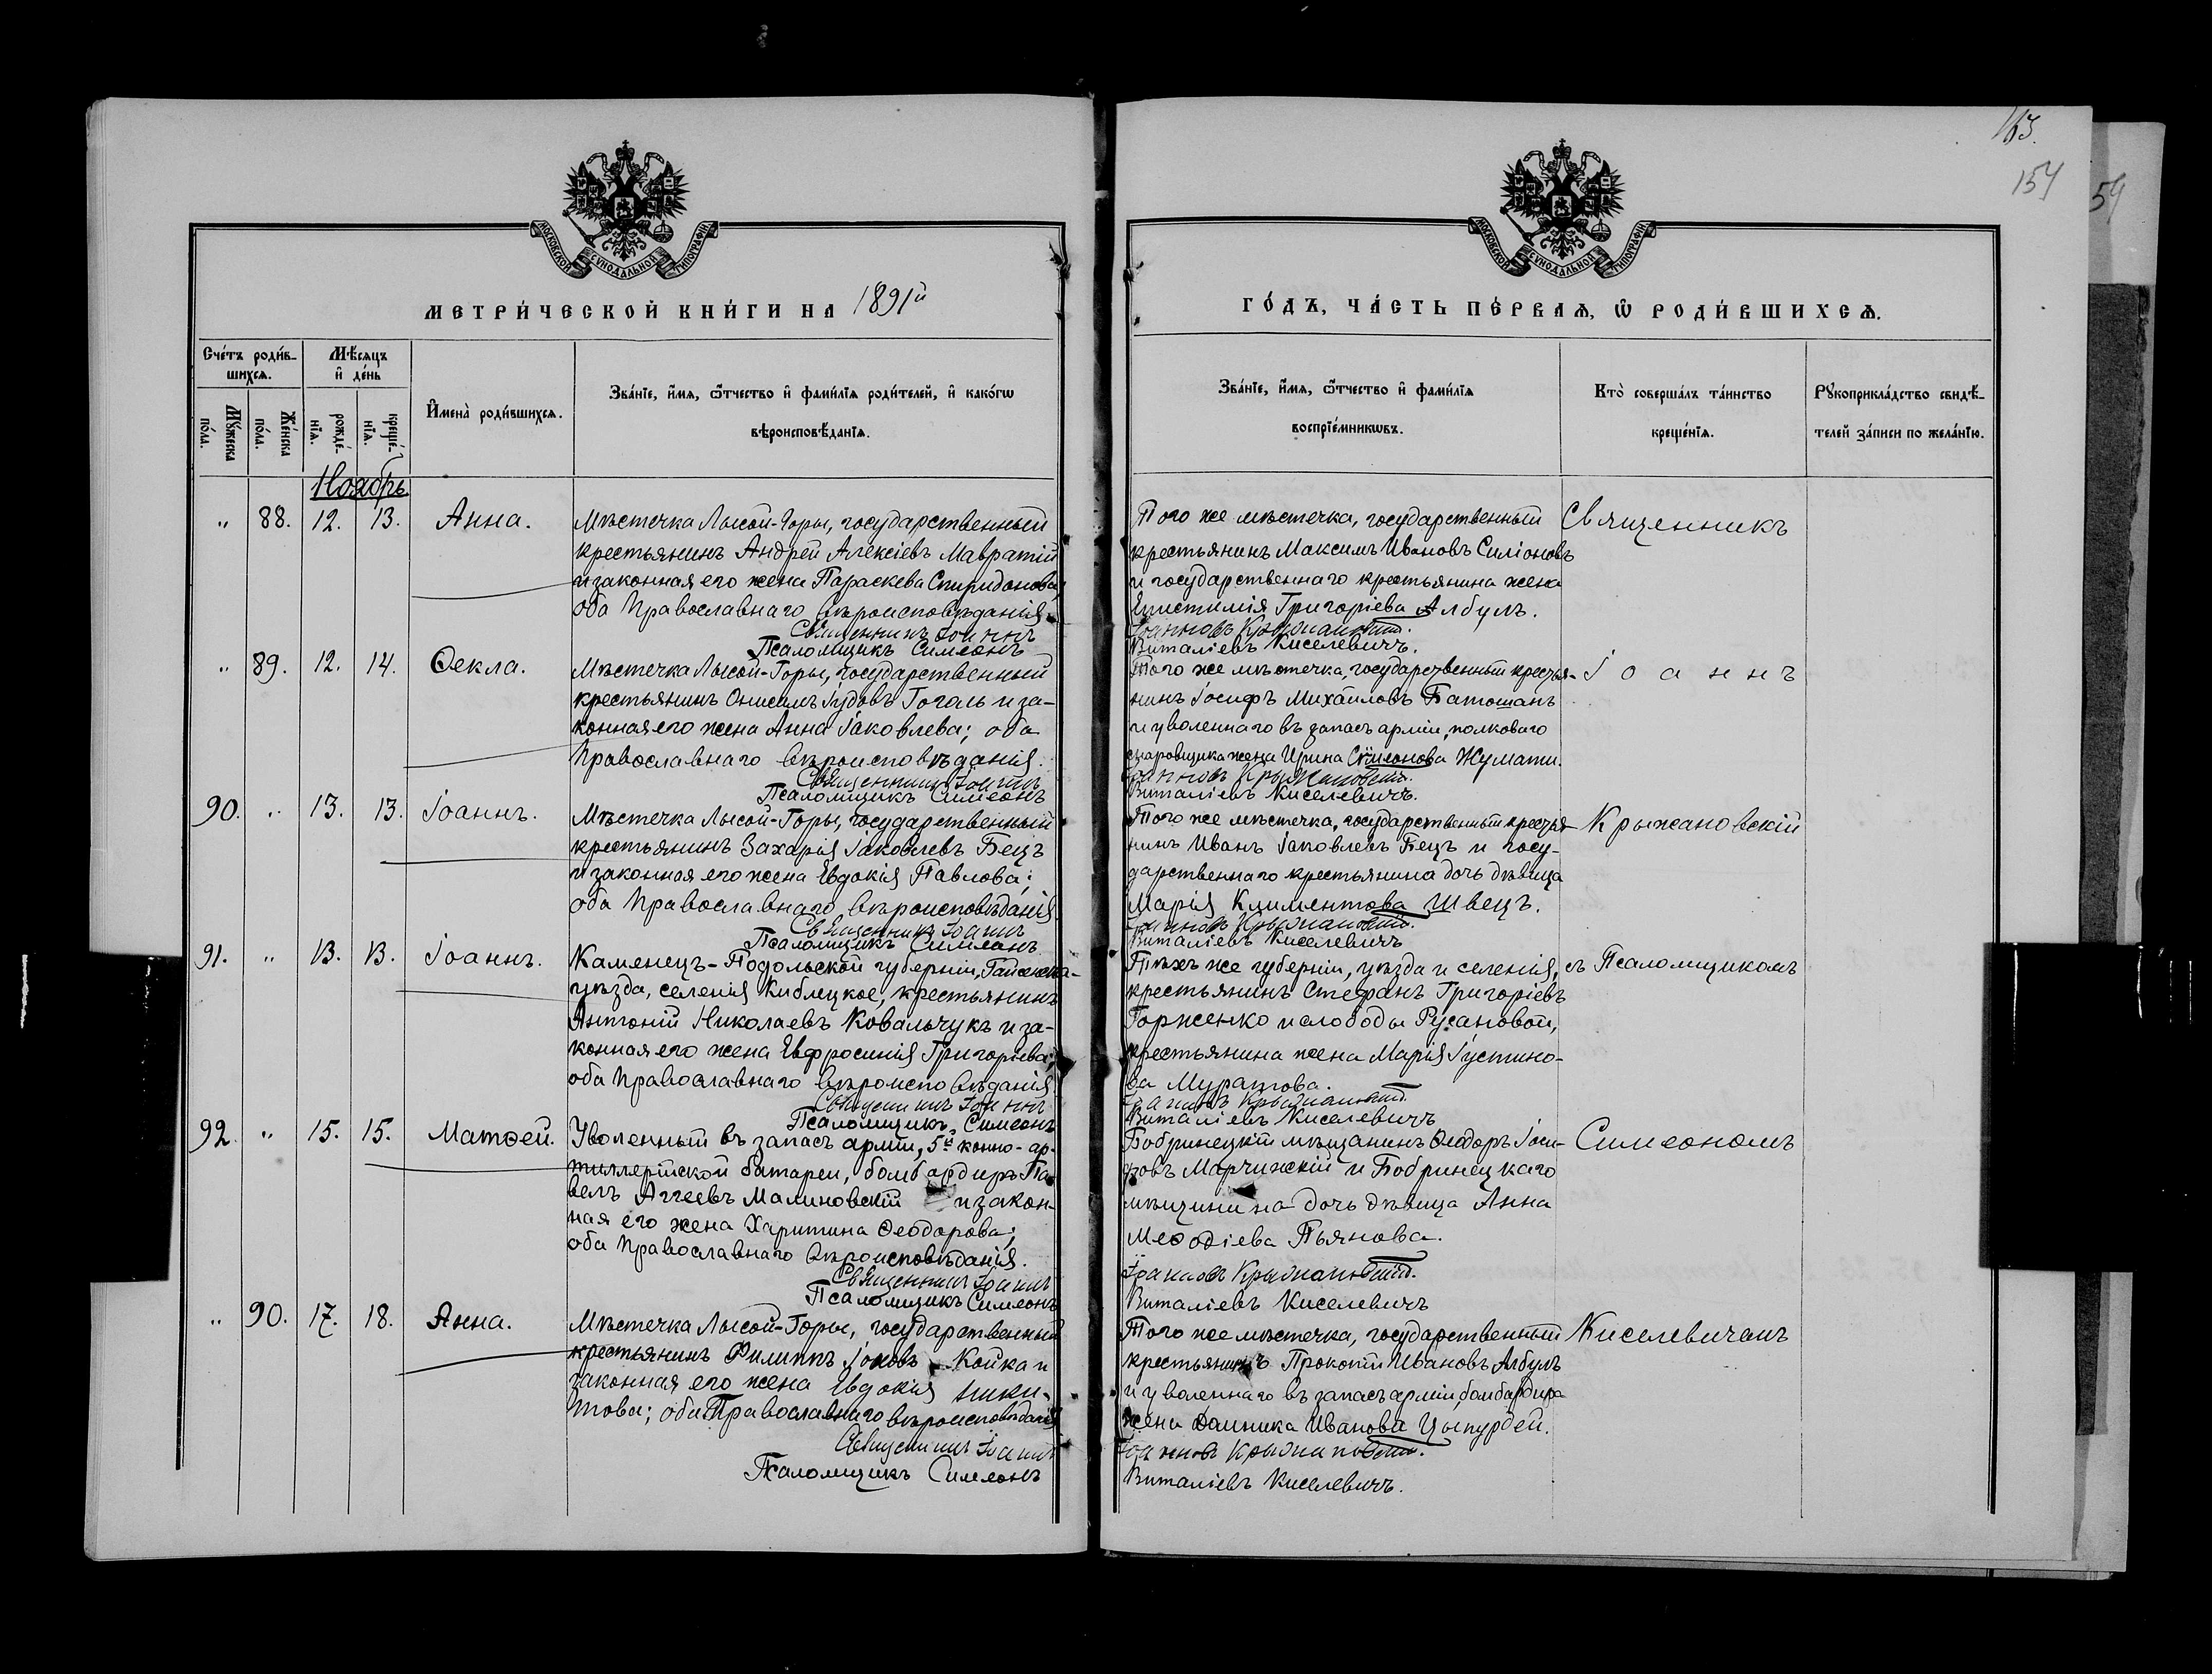 163.
154
59
МОСКОВСКОЙ СѴНОДАЛЬНОЙ ТИПОГРАФІИ
МОСКОВСКОЙ СѴНОДАЛЬНОЙ ТИПОГРАФІИ
МЕТРИ́ЧЕСКОЙ КНИ́ГИ НА 1891й
ГО́ДЪ, ЧА́СТЬ ПЕ́РВАѦ, Ѿ РОДИ́ВШИХСѦ.
Сче́тъ роди́в-
шихсѧ.
Мѣ́сяцъ
и҆ де́нь
Мꙋ́жеска
по́ла.
Же́нска
по́ла.
рожде́-
нїѧ.
креще́-
нїѧ.
И҆мена̀ роди́вшихсѧ.
Зва́нїе, и҆́мѧ, ѻ҆́тчество и҆ фами́лїѧ роди́телей, и҆ како́гѡ
вѣроисповѣ́данїѧ.
Зва́нїе, и҆́мѧ, ѻ҆́тчество и҆ фами́лїѧ
воспрїе́мникѡвъ.
Кто̀ соверша́лъ та́инство
креще́нїѧ.
Рꙋкоприкла́дство свидѣ́-
телей за́писи по жела́нїю.
Ноябрь
„ 88. 12. 13. Анна.
Мѣстечка Лысой-Горы, государственный
крестьянинъ Андрей Алексіевъ Мавратій
и законная его жена Параскева Спиридонова;
оба Православнаго вѣроисповѣданія.
Священникъ Іоаннъ
Псаломщикъ Симеонъ
Того же мѣстечка, государственный
крестьянинъ Максимъ Ивановъ Силіоновъ
и государственнаго крестьянина жена
Епистимія Григоріева Албулъ.
Іоанновъ Крыжановскій.
Виталіевъ Киселевичъ.
Священникъ
„ 89. 12. 14. Ѳекла.
Мѣстечка Лысой-Горы, государственный
крестьянинъ Онисимъ Іудовъ Гоголь и за-
конная его жена Анна Іаковлева; оба
Православнаго вѣроисповѣданія.
Священникъ Іоаннъ
Псаломщикъ Симеонъ
Того же мѣстечка, государственный крестья-
нинъ Іосифъ Михаиловъ Батошанъ
и уволеннаго въ запасъ арміи, полковаго
жена Ирина Симеонова Жумати.
Іоанновъ Крыжановскій.
Виталіевъ Киселевичъ.
Іоаннъ
90. „ 13. 13. Іоаннъ.
Мѣстечка Лысой-Горы, государственный
крестьянинъ Захарія Іаковлевъ Бецъ
и законная его жена Евдокія Павлова;
оба Православнаго вѣроисповѣданія
Священникъ Іоаннъ
Псаломщикъ Симеонъ
Того же мѣстечка, государственный крестья-
нинъ Иванъ Іаковлевъ Бецъ и госу-
дарственнаго крестьянина дочь дѣвица
Марія Климентова Швецъ.
Іоанновъ Крыжановскій.
Виталіевъ Киселевичъ
Крыжановскій
91. „ 13. 13. Іоаннъ.
Каменецъ-Подольской губерніи,
уѣзда, селенія Киблецкое, крестьянинъ
Антоній Николаевъ Ковальчукъ и за-
конная его жена Евфросинія Григоріева;
оба Православнаго вѣроисповѣданія
Священникъ Іоаннъ
Псаломщикъ Симеонъ
Тѣхъ же губерніи, уѣзда и селенія,
крестьянинъ Стефанъ Григоріевъ
Горженко и слободы Русановой,
крестьянина жена Марія Іустино-
ва Муратова.
Іоанновъ Крыжановскій.
Виталіевъ Киселевичъ
съ Псаломщикомъ
92. „ 15. 15. Матѳей.
Уволенный въ запасъ арміи, 5й конно-ар-
тиллерійской батареи, бомбардиръ Па-
велъ Аггеевъ Малиновскій и закон-
ная его жена Харитина Ѳеодорова;
оба Православнаго вѣроисповѣданія.
Священникъ Іоаннъ
Псаломщикъ Симеонъ
Бобринецкій мѣщанинъ Ѳеодоръ Іоси-
фовъ Марчижскій и Бобринецкаго
мѣщанина дочь дѣвица Анна
Меѳодіева Пьянова.
Іоанновъ Крыжановскій.
Виталіевъ Киселевичъ
Симеономъ
„ 90. 17. 18. Анна.
Мѣстечка Лысой-Горы, государственный
крестьянинъ Филиппъ Іововъ Койка и
законная его жена Евдокія Ники-
това; оба Православнаго вѣроисповѣданія
Священникъ Іоаннъ
Псаломщикъ Симеонъ
Того же мѣстечка, государственный
крестьянинъ Прокопій Ивановъ Албулъ
и уволеннаго въ запасъ арміи, бомбардира
жена Домника Иванова Цыпурдей.
Іоанновъ Крыжановскій.
Виталіевъ Киселевичъ.
Киселевичемъ